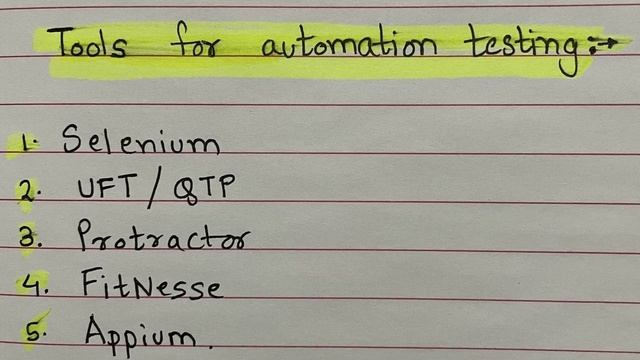 Tools for automation testing :→
1. Selenium
2. UFT / QTP
3. Protractor
4. FitNesse
5. Appium.